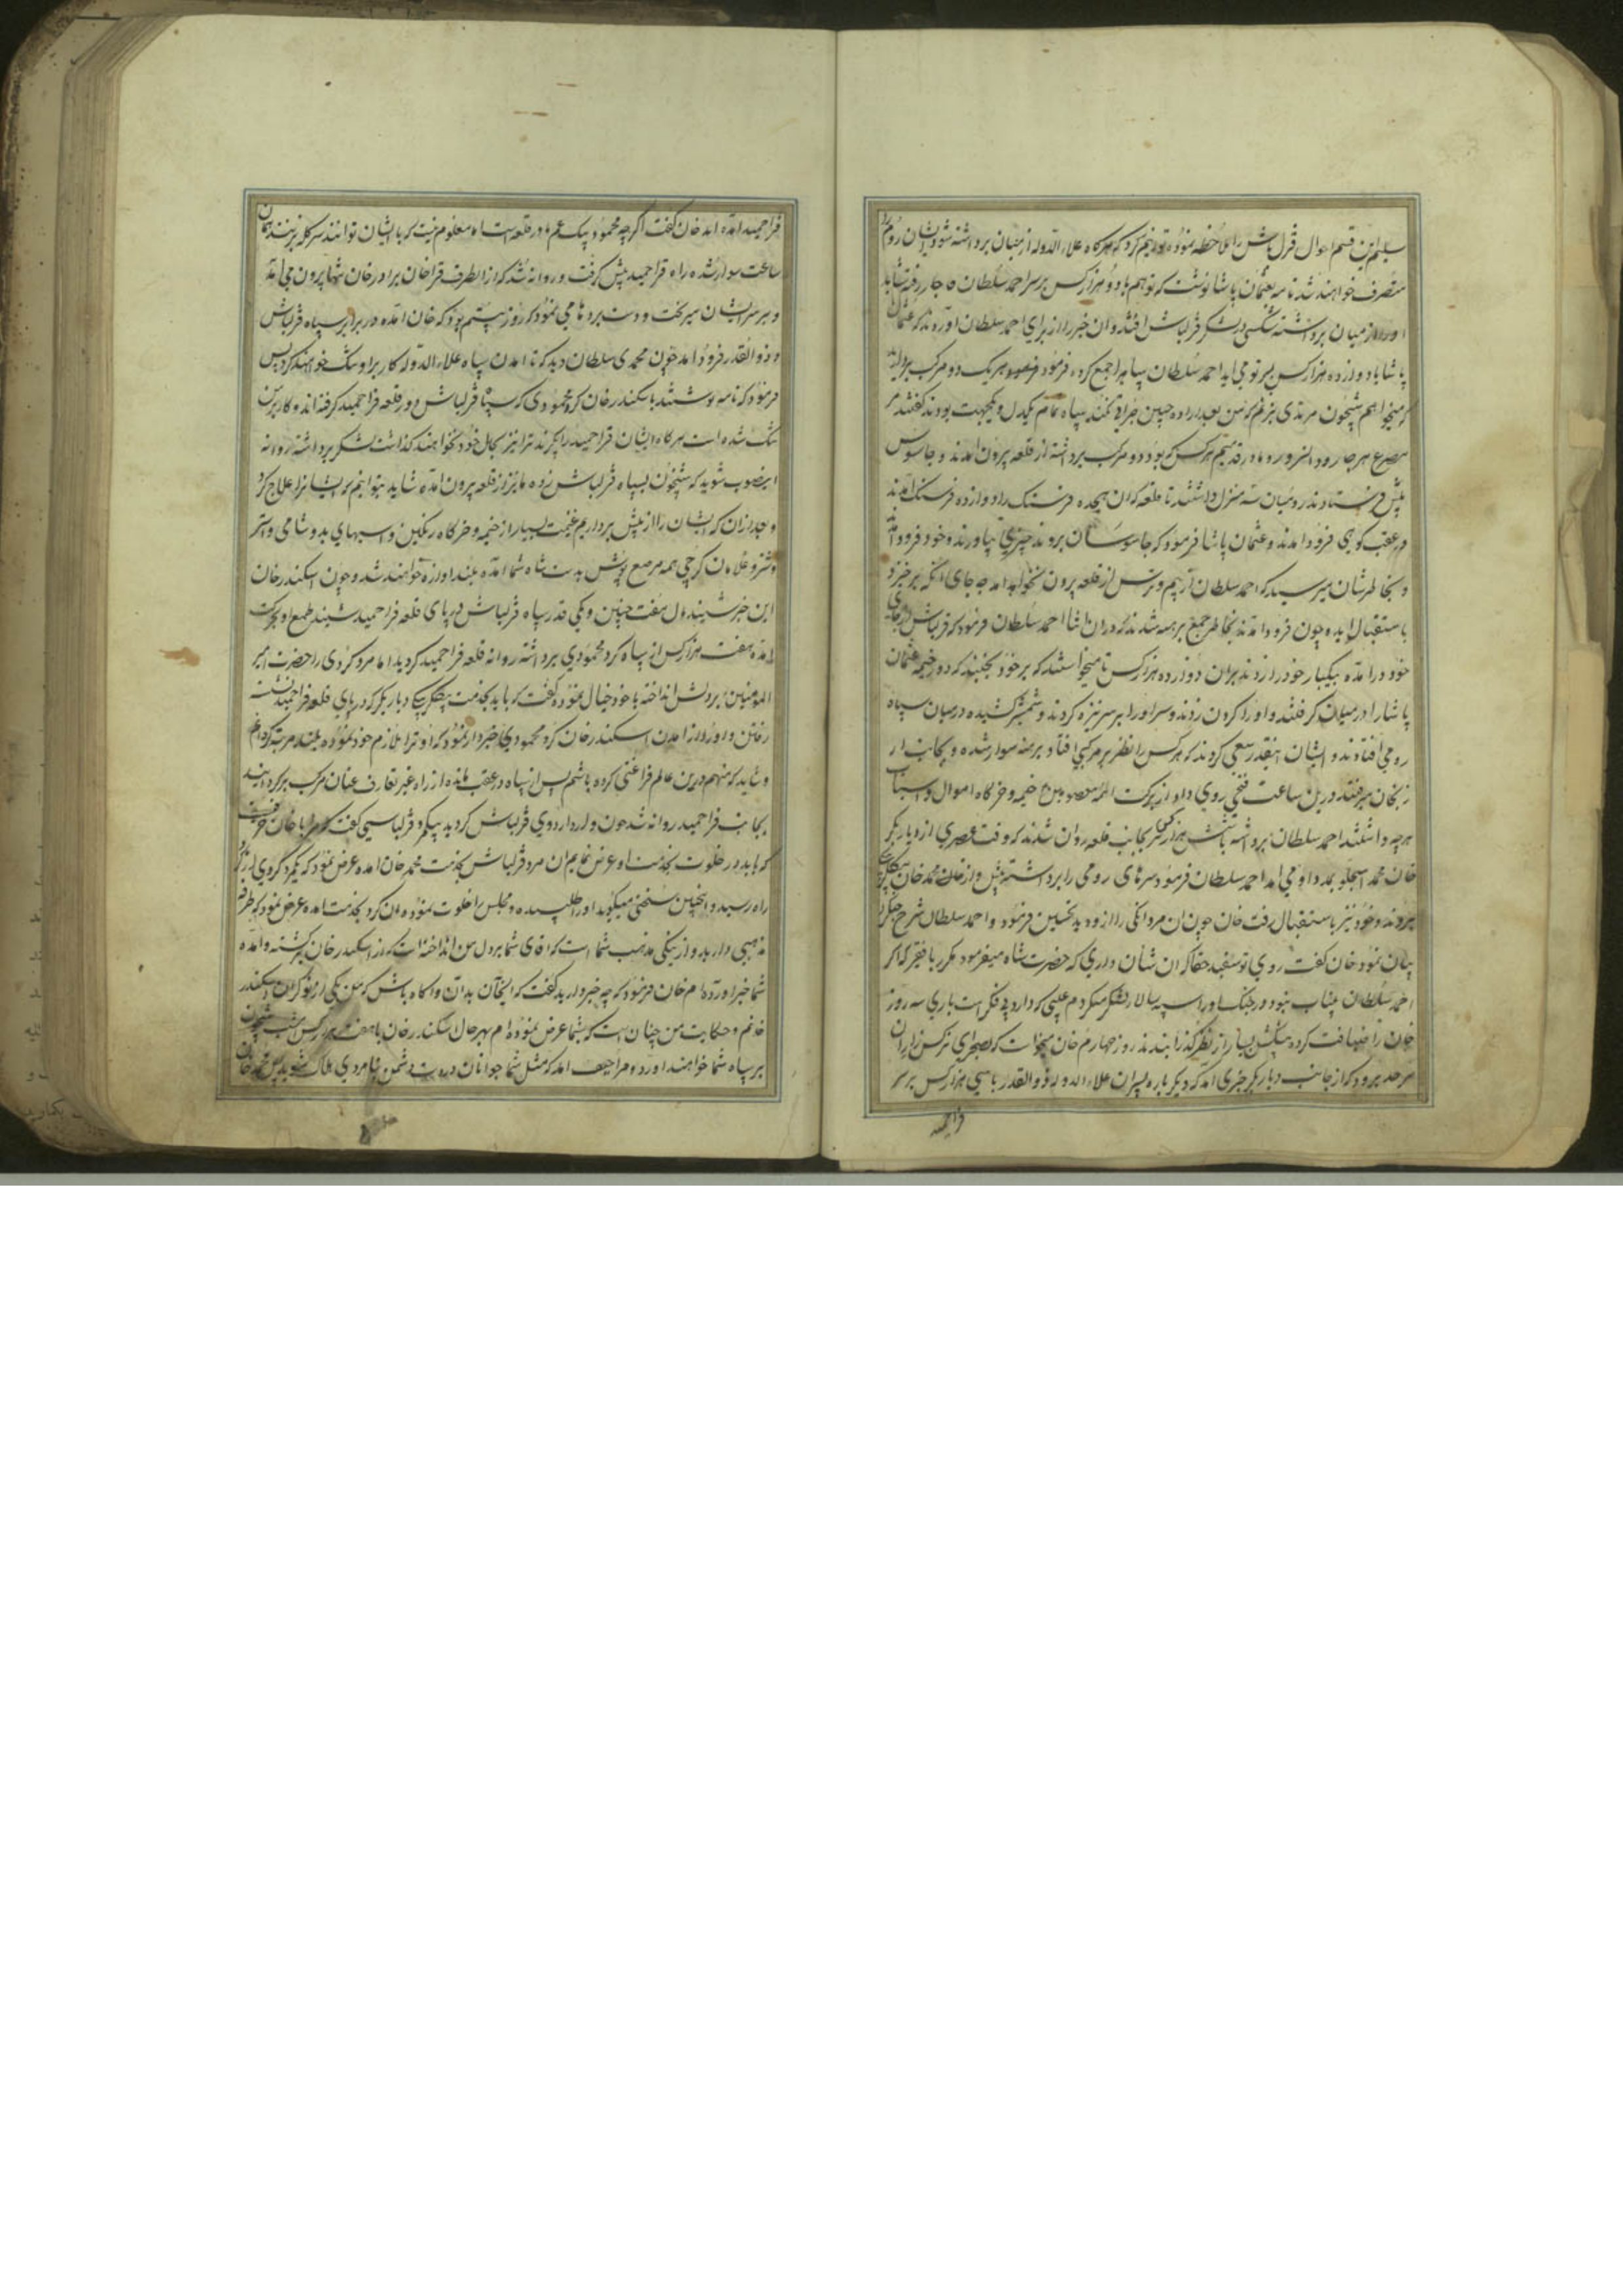 سلیم این قسم احوال قزل باش را ملاحظه نموده که هرگاه علاء الدوله از میان برداشته شود ایشان روم را
متصرف خواهند شد نامه بعثمان پاشا نوشت که تو هم با دو هزار کس بر سر احمد سلطان قاجار رفته شاید
او را از میان برداشته شکستی در لشکر قزلباش افتد و آن خبر را از برای احمد سلطان آوردند که عثمان
پاشا با دوازده هزار کس بر تو می آید احمد سلطان سپاه را جمع کرده فرمود هر یک دو مرکب بردارند
که میخواهم شبخون مردی بزنم که من بعد اراده چنین جرات نکند سپاه تمام یکدل و یکجهت بودند گفتند
هر کس که بود دو مرکب برداشته از قلعه بیرون آمدند و جاسوس
پیش فرستادند و میان سه منزل داشتند تا قلعه که آن هیجده فرسنک راه دوازده فرسنک آمدند
در عقب کوهی فرود آمدند و عثمان پاشا فرمود که جاسوسان بروند خبری بیاورند و خود فرود آمد
و بخاطرشان میرسید که احمد سلطان از بیم و ترس از قلعه بیرون نخواهد آمد چه جای آنکه برخیزد
باستقبال آید چون فرود آمدند بخاطر جمع برهنه شدند که در آن اثنا احمد سلطان فرمود که قزلباش از جای
خود درآمده بیکبار خود را زدند بر آن دوازده هزار کس تا میخواستند که بر خود بجنبند که دور خیمه عثمان
پاشا را در میان گرفتند و او را گردن زدند و سر او را بر سر نیزه کردند و شمشیر کشیده در میان سپاه
رومی افتادند و ایشان اینقدر سعی کردند که هر کس را نظر بر مرکبی افتاد برهنه سوار شده و بجانب ار
زنجان میرفتند در یک ساعت فتحی روی داد از برکت ائمه معصومین ع خیمه و خرگاه اموال و اسباب
هرچه داشتند احمد سلطان برداشته با شش هزار کس بجانب قلعه روان شدند که وقت عصری از دیاربکر
خان محمد استجلو بمدد او می آمد احمد سلطان فرمود سرهای رومی را برداشته پیش واز خان محمد خان بیگلربیگی
بروند و خود نیز باستقبال رفت خان چون آن مردانکی را از او دید تحسین فرمود و احمد سلطان شرح جنگ را
بیان نمود خان گفت روی تو سفید حقا که آن شان داری که حضرت شاه میفرمود مکرر با فقیر که اگر
احمد سلطان بیتاب نبود در جنک او را سپه سالار لشکر میکردم عیبی که دارد بیفکر است باری سه روز
خان را ضیافت کرده پیشکش بسیار از نظر گذرانیدند روز چهارم خان میخواست که
سرحد برود که از جانب دیاربکر خبری آمد که دیگر باره پسران علاء الدوله ذو القدر با سی هزار کس بر سر
قراحمید
قراحمید آمده اند خان گفت اگرچه محمود بیک عم ما در قلعه است اما معلوم نیست که با ایشان توانند سرکله بزنند همان
ساعت سوار شده راه قراحمید پیش گرفت و روانه شد که از آنطرف قراخان برادر خان شبها بیرون می آمد
و بر سر ایشان میریخت و دست بردها می نمود که روز بیستم بود که خان آمده در برابر سپاه قزلباش
و ذو القدر فرود آمد چون محمدی سلطان دید که تا آمدن سپاه علاء الدوله کار بر او تنک خواهند کرد پس
فرمود که نامه نوشتند باسکندر خان کرد محمودی که سپاه قزلباش دور قلعه قراحمید گرفته اند و کار بر من
تنک شده است هرگاه ایشان قراحمید را بگیرند ترا نیز بحال خود نخواهند گذاشت لشکر برداشته روانه
اینصوب شوید که شبخون بسپاه قزلباش زده ما نیز از قلعه بیرون آمده شاید بتوانیم که ایشانرا علاج کرد
و بعد از آن که ایشان را از پیش برداریم غنیمت بسیار از خیمه و خرگاه رنگین و اسبهای بدو شامی و استر
و شتر و غلامان گرجی همه مرصع پوش بدست سپاه شما آمده بلند آوازه خواهند شد و چون اسکندر خان
این خبر شنید اول گفت چنین و یکی قدر سپاه قزلباش در پای قلعه قراحمید شنید طمع او بحرکت
آمده هفت هزار کس از سپاه کرد محمودی برداشته روانه قلعه قراحمید گردید اما مرد کردی را حضرت امیر
المؤمنین بر دلش انداخته با خود خیال نموده گفت که باید بخدمت بیگلربیگی دیاربکر که در پای قلعه قراحمید نشسته
رفتن و او را از آمدن اسکندر خان کرد محمودی خبردار نمود که او ترا ملازم خود نموده بلند مرتبه گردانم
و شاید که منهم درین عالم فراغتی کرده باشم پس از سپاه در عقب مانده از راه غیر تعارف عنان مرکب برگردانید
بجانب قراحمید روانه شد چون وارد اردوی قزلباش گردید بیکمرد قزلباسی گفت که مرا با خان حرفیست
که باید در خلوت بخدمت او عرض نمایم آن مرد قزلباش بخدمت محمد خان آمده عرض نمود که یکمرد کردی از گرد
راه رسید و اینچنین سخنی میگوید او را طلبیده و مجلس را خلوت نموده آن کرد بخدمت آمده عرض نمود که طرفه
مذهبی دارید و از نیکی مذهب شما است که آقای شما بر دل من انداخته است که از اسکندر خان برگشته و آمده
شما خبر آورده ام خان فرمود که چه خبر دارید گفت که ایخان بدان و آگاه باش که من یکی از نوکران اسکندر
خانم و حکایت من چنان است که بشما عرض نموده ام بهر حال اسکندر خان با هفت هزار کس امشب شبخون
بر سپاه شما خواهند آورد و مرا حیف آمد که مثل شما جوانان در دست دشمن بنامردی هلاک شوید پس محمد خان